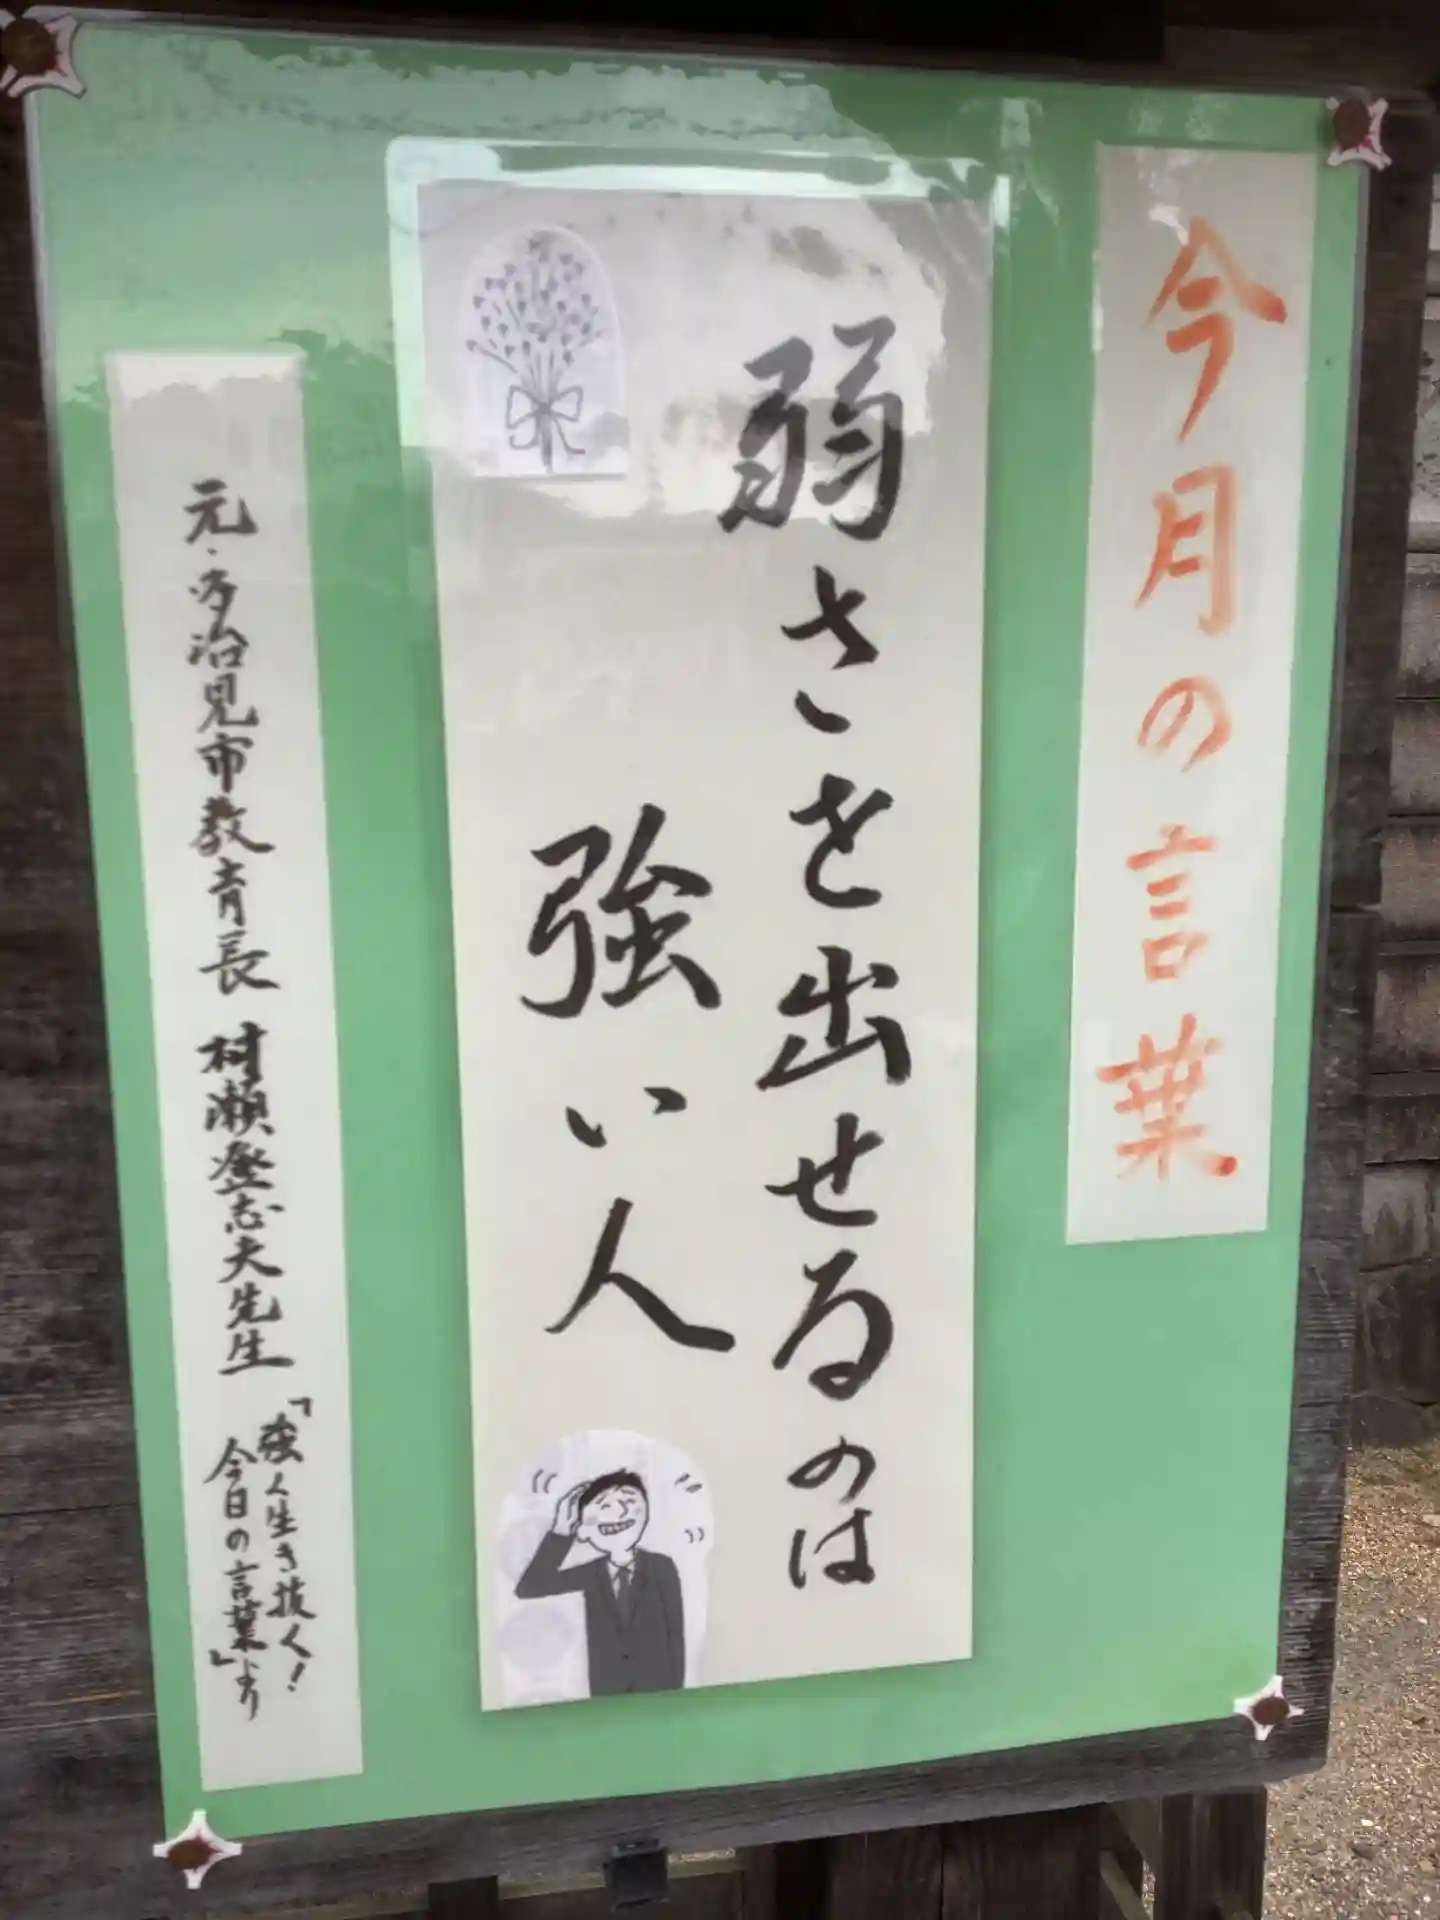 今月の言葉
弱さを出せるのは
強い人
元・多治見市教育長 村瀬登志夫先生
「強く生き抜く!
今日の言葉」より